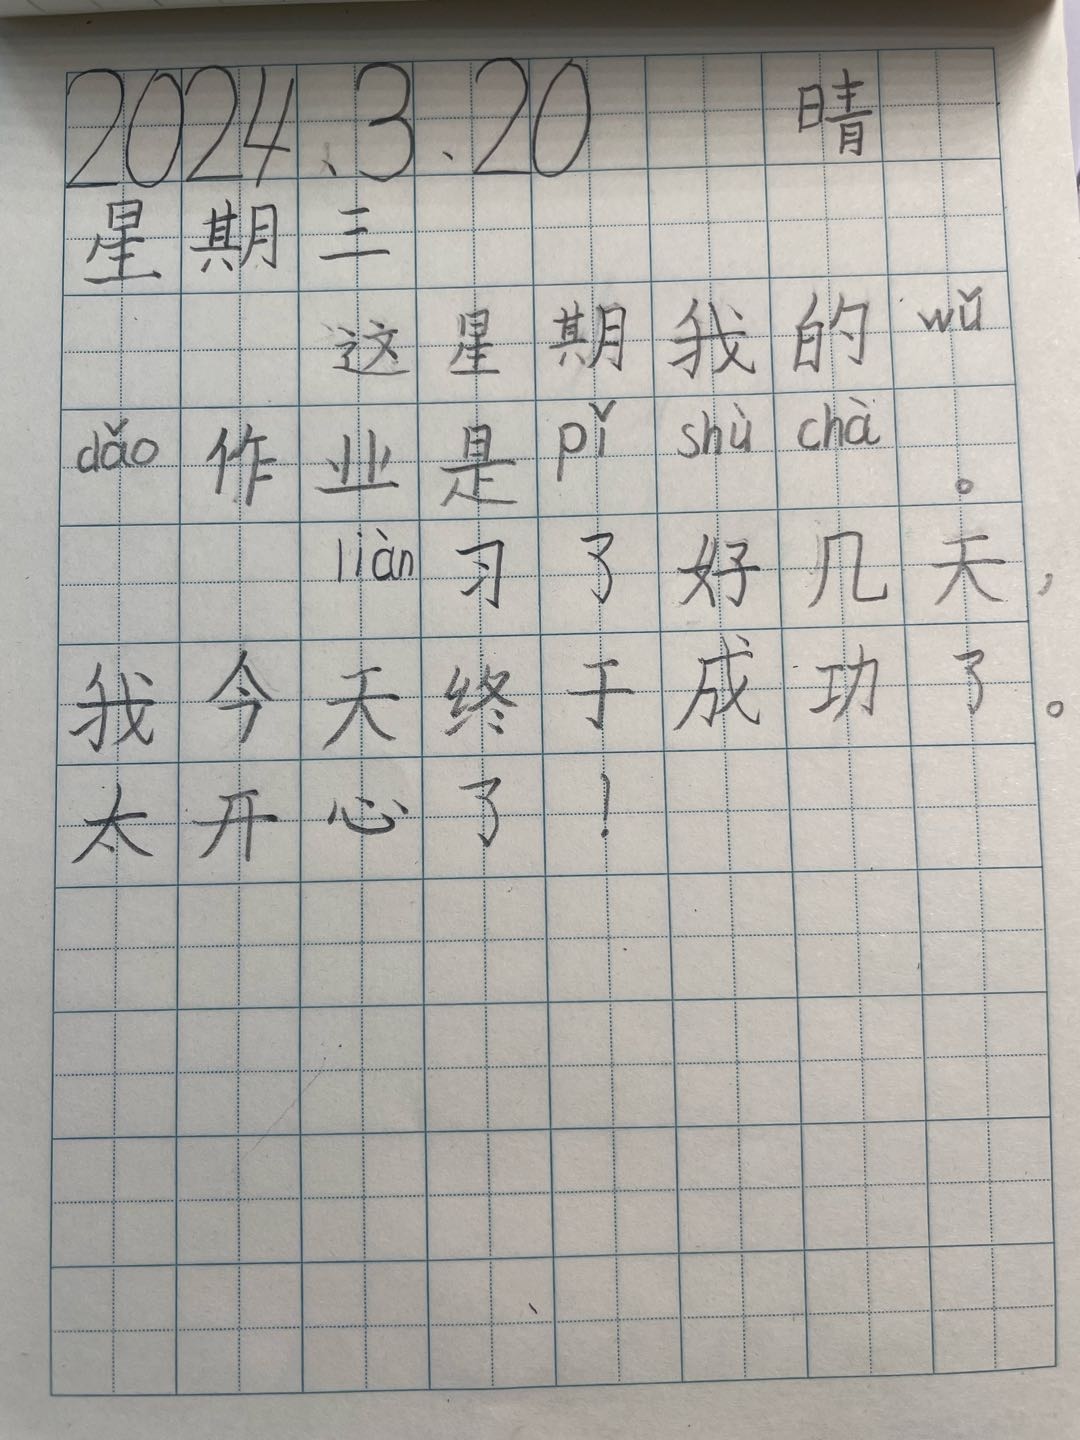 2024.3.20 晴
星期三
这星期我的wǔ
dǎo作业是pǐ shù chà。
liàn习了好几天,
我今天终于成功了。
太开心了!